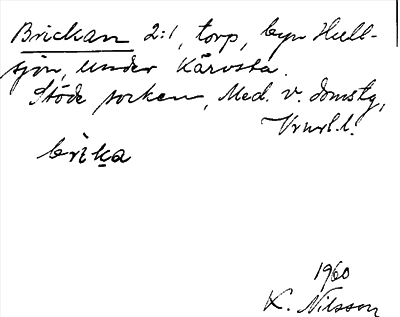 Brickan 2:1, torp, byn Hull-
sjön, under Kärvsta.
Stöde socken, Med. v. domstg,
Vrnrl.l.
brika
1960
K. Nilsson